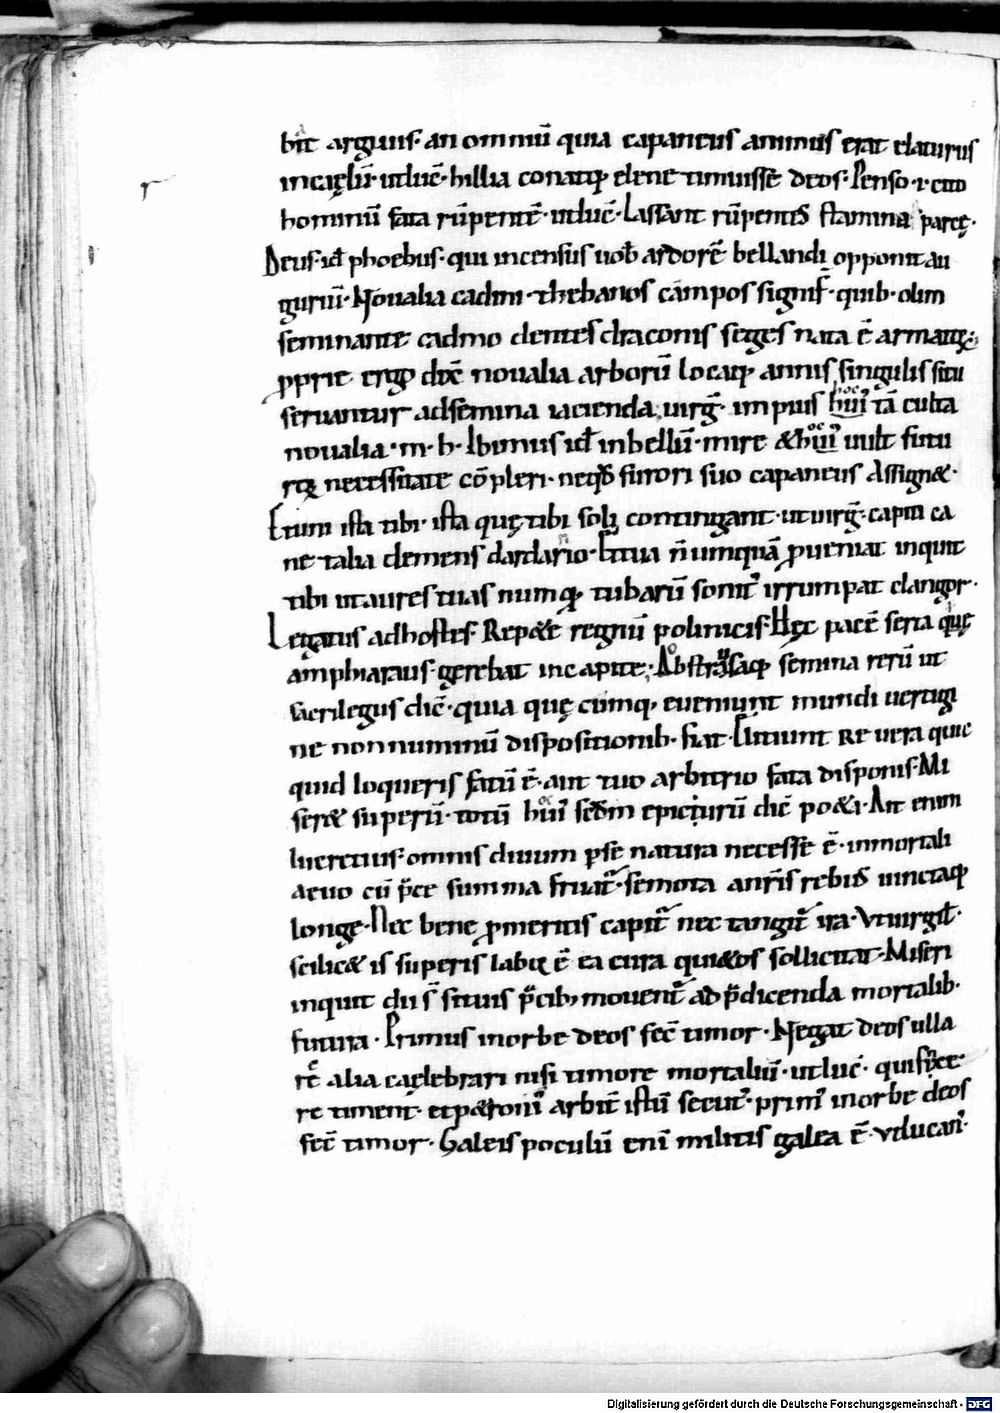 bit arguus· an omniū quia capaneus animus erat elaturus
in cęlū· ut luc̄· hill ia conatiq; elene timuisse deos· Penso· i· cito
hominū fata rūpentē· ut luc̄· Lassant rūpentis stamina parcę·
Deus· id phoebus· qui incensus uob ardorē bellandi opponit au
guriū· Noualia cadmi· thebanos campos signif· quib· olim
seminante cadmo dentes draconis seges nata ē armatę·
pprie ergo dnr̄ noualia arborū locaq; annis singulis situ
seruantur ad semina iacienda; uirḡ· impius hūī tā culta
noualia· m· h· Ibimus id in bellū· mire & hūī uult futu
rę necessitate cōpleri· neqd furori suo capaneus assign&·
Etum ista tibi· ista quę tibi soli contingant· ut uirḡ· capiti ca
ne talia demens dardario· Et tua n̄ umquā pueniat inquit
tibi ut aures tuas numq; tubarū sonit irrumpat clangor·
Legatus ad hostes· Repet& regnū polinicis· Hęc pacē serta quę
amphiaraus· gerebat in capite; Abstrusaq; semina rerū ut
sacrilegus dic̄· quia quę cumq; eueniunt mundi uertigi
ne non numinū dispositionib· fiat· Vtiunt re uera quic
quid loqueris fatū ē· aut tuo arbitrio fata disponis· Mi
ser& superū· totū hūī secdm epicurū dic̄ po&a· Ait enim
lucretius· omnis diuum p se natura necesse ē· inmortali
aeuo cū pce summa fruat· semota anris rebus uinctaq;
longe· Nec bene pmeritis capit nec tangit ira· Vt uirgil·
scilic& is superis labor ē ea cura qui&os sollicitat· Miseri
inquit dii s situis pcib; mouent ad pdicenda mortalib·
futura· Primus in orbe deos fec̄ timor· Negat deos ulla
rē alia caęlebrari nisi timore mortaliū· ut luc̄· qui finxe
re timent· et p&roniū arbit istū secut· prim in orbe deos
fec̄ timor· Galeis poculū enī militis galea ē· ut lucan·
Digitalisierung gefördert durch die Deutsche Forschungsgemeinschaft - DFG